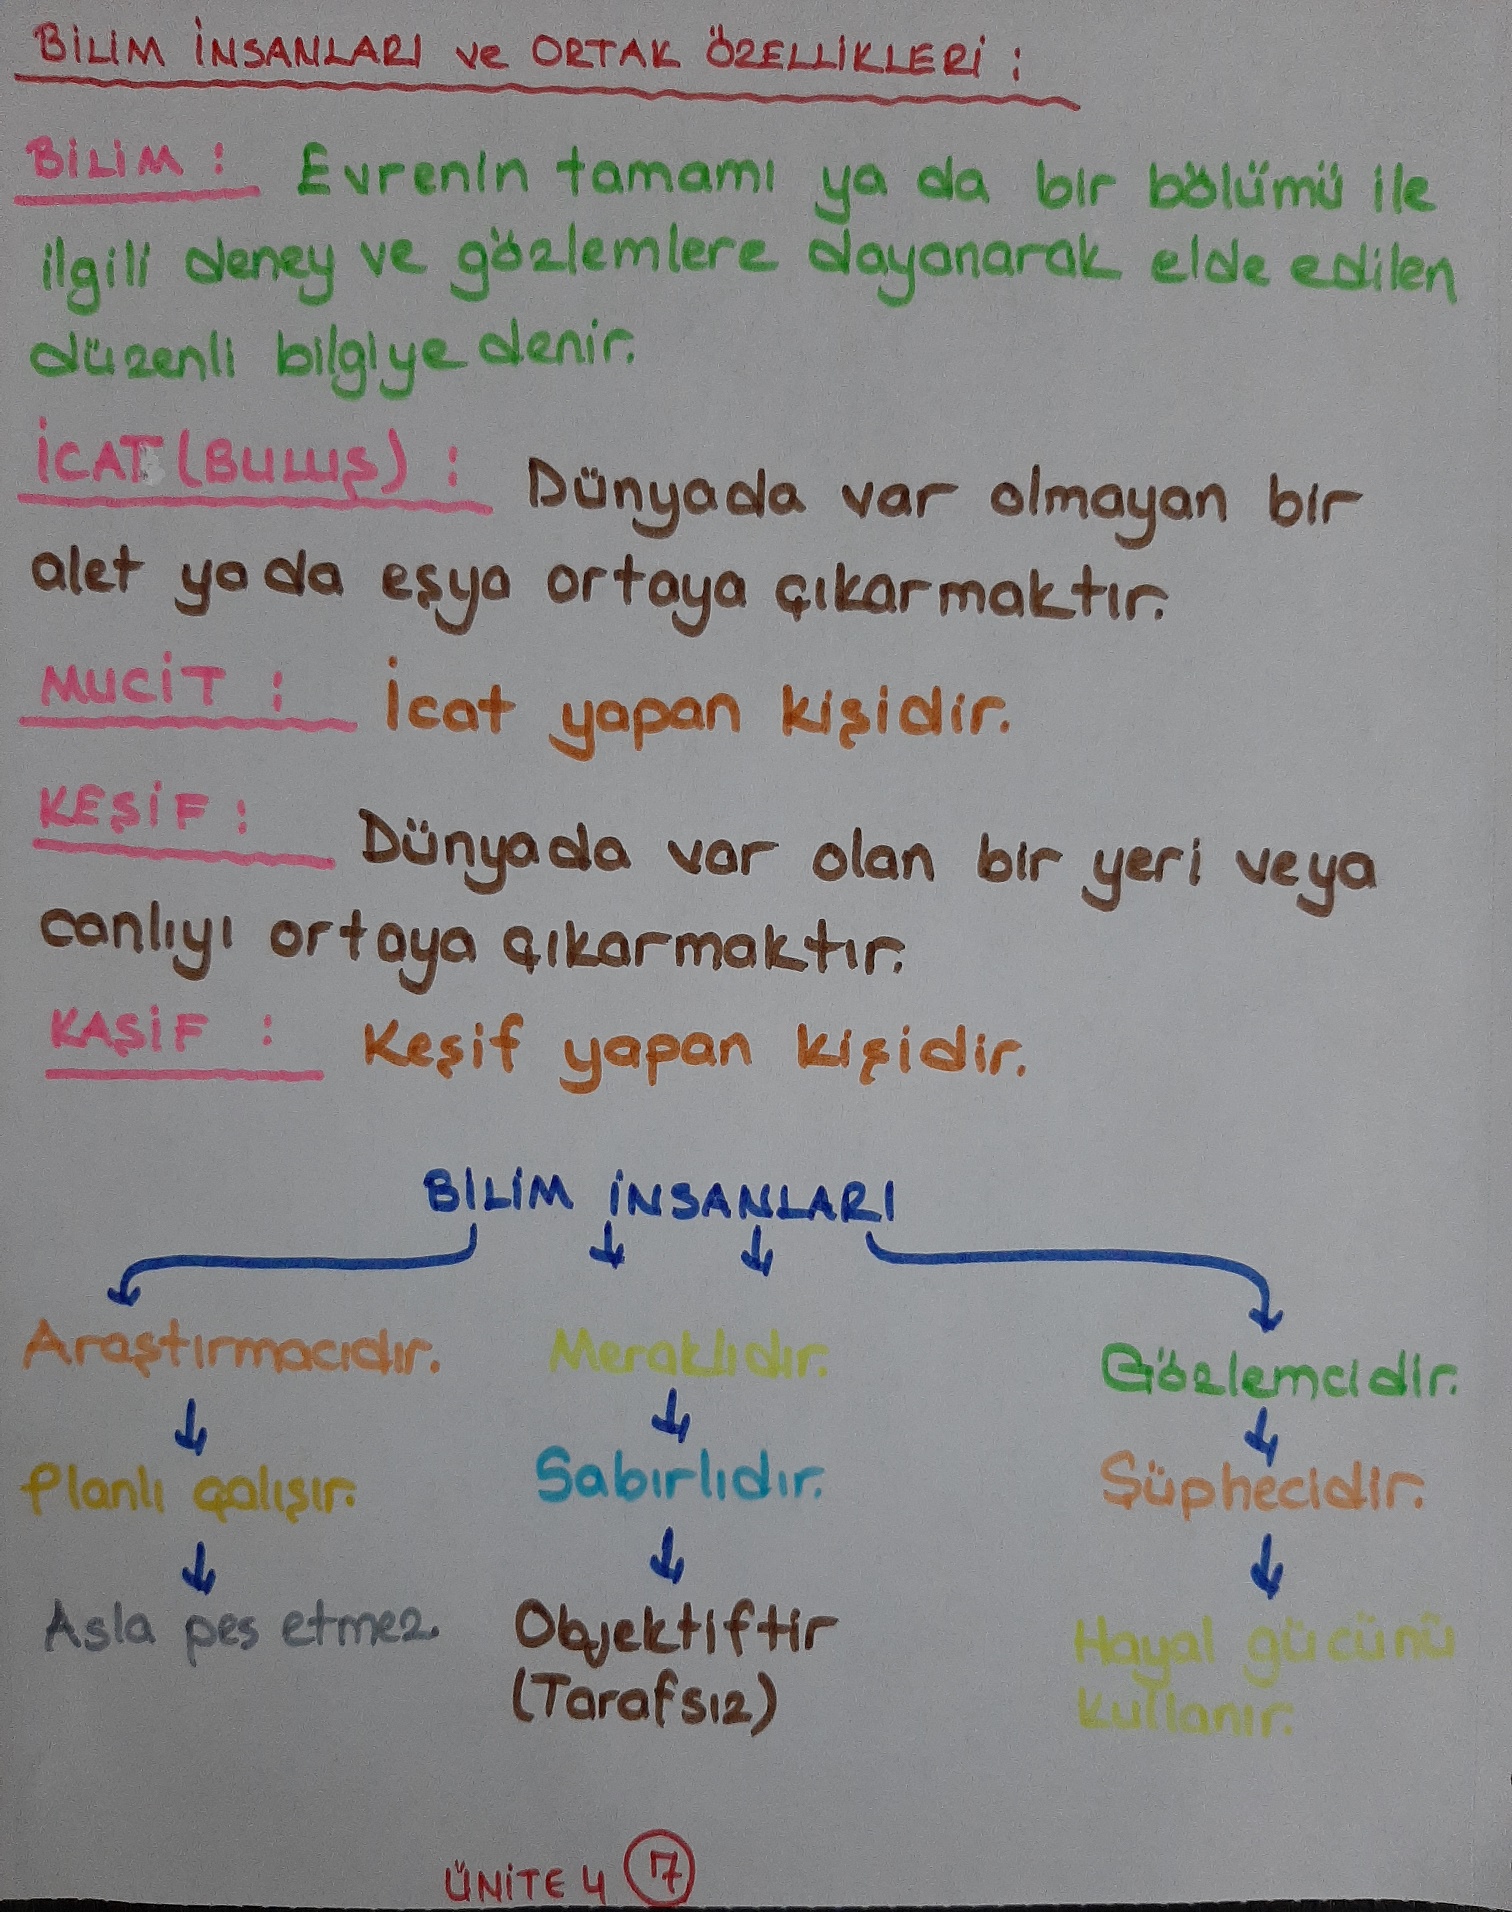 BİLİM İNSANLARI ve ORTAK ÖZELLİKLERİ :
BİLİM : Evrenin tamamı ya da bir bölümü ile
ilgili deney ve gözlemlere dayanarak elde edilen
düzenli bilgiye denir.
İCAT (BULUŞ) : Dünyada var olmayan bir
alet ya da eşya ortaya çıkarmaktır.
MUCİT : İcat yapan kişidir.
KEŞİF : Dünyada var olan bir yeri veya
canlıyı ortaya çıkarmaktır.
KAŞİF : Keşif yapan kişidir.
BİLİM İNSANLARI
Araştırmacıdır. Meraklıdır. Gözlemcidir.
Planlı çalışır. Sabırlıdır. Şüphecidir.
Asla pes etmez. Objektiftir Hayal gücünü
(Tarafsız) kullanır.
ÜNİTE 4 17